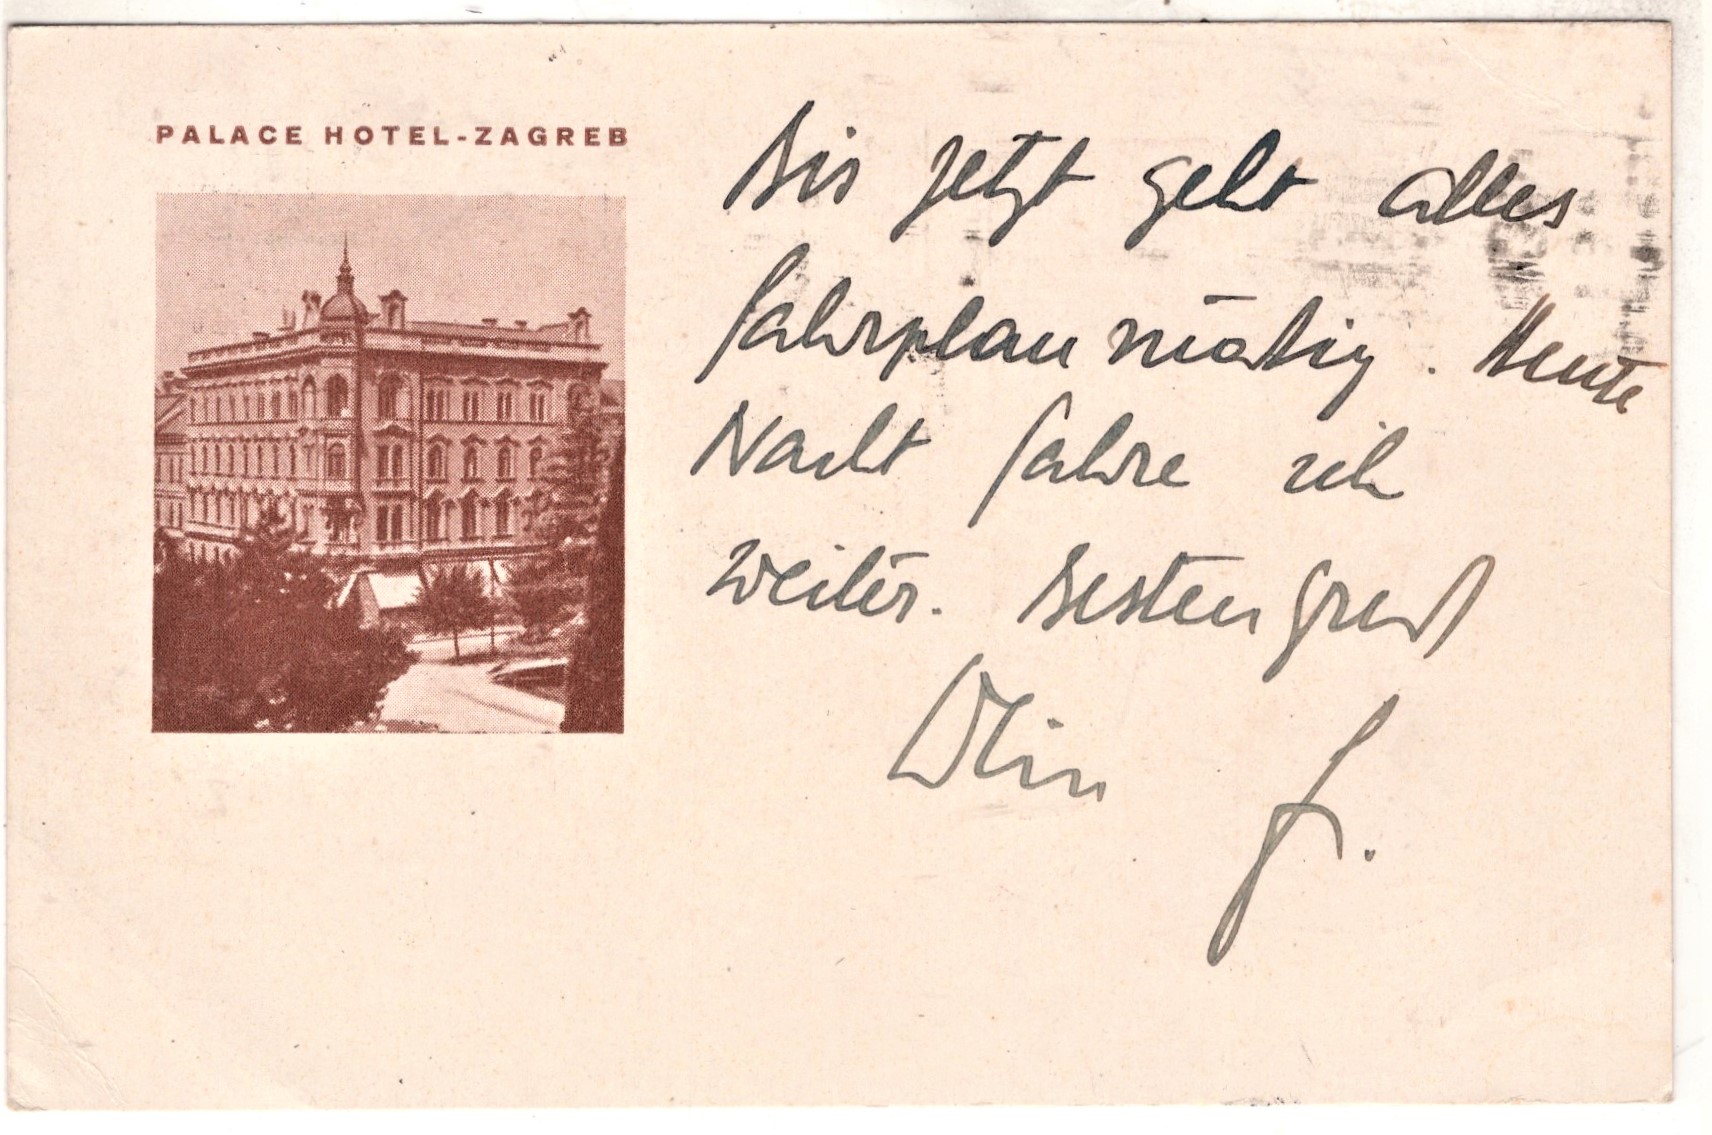 PALACE HOTEL-ZAGREB
Bis jetzt geht alles
fahrplanmäßig. Heute
Nacht fahre ich
weiter. Besten Gruß
Dein